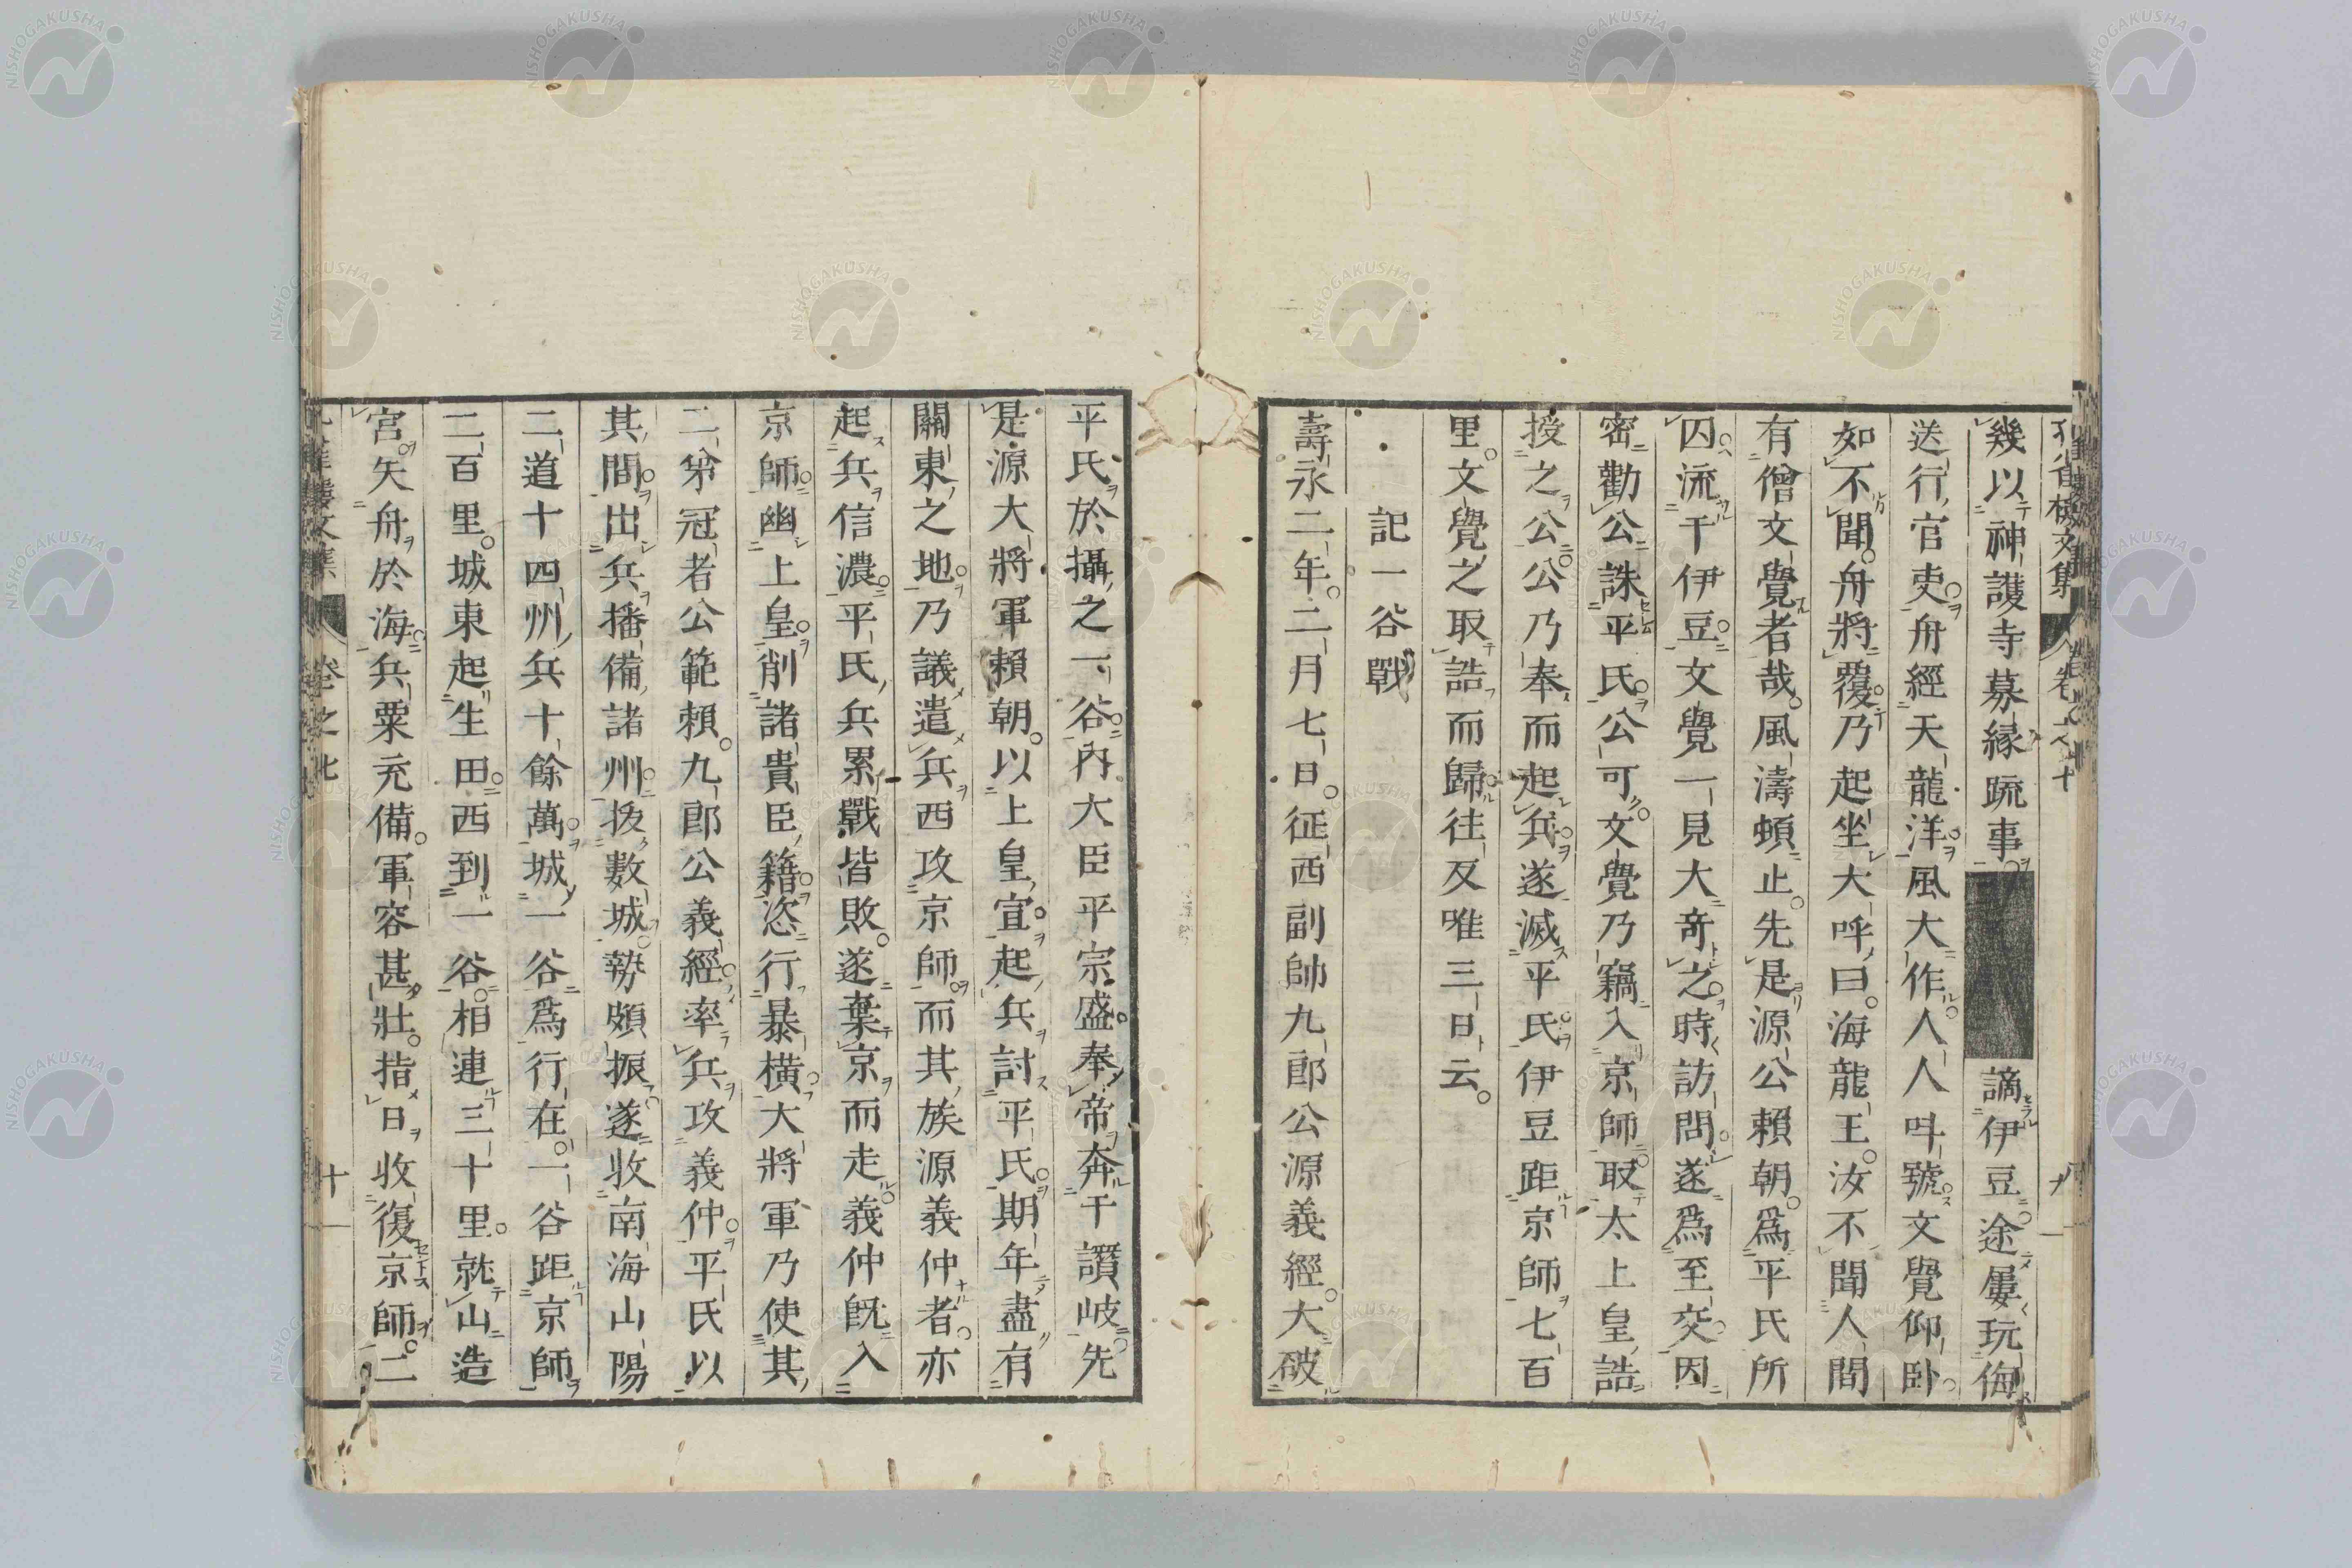 幾以神護寺募縁疏事謫伊豆途屢玩侮
送行官吏舟經天龍洋風大作人人呌號文覺仰卧
如不聞舟將覆乃起坐大呼曰海龍王汝不聞人間
有僧文覺者哉風濤頓止先是源公賴朝爲平氏所
囚流于伊豆文覺一見大奇之時訪問遂爲至交因
密勸公誅平氏公可文覺乃竊入京師取太上皇誥
授之公公乃奉而起兵遂滅平氏伊豆距京師七百
里文覺之取誥而歸往反唯三日云
記一谷戰
壽永二年二月七日征西副帥九郎公源義經大破
平氏於攝之一谷内大臣平宗盛奉帝奔于讚岐先
是源大將軍賴朝以上皇宣起兵討平氏期年盡有
關東之地乃議遣兵西攻京師而其族源義仲者亦
起兵信濃平氏兵累戰皆敗遂棄京而走義仲既入
京師幽上皇削諸貴臣籍恣行暴橫大將軍乃使其
二弟冠者公範賴九郎公義經率兵攻義仲平氏以
其間出兵播備諸州拔數城勢頗振遂收南海山陽
二道十四州兵十餘萬城一谷爲行在一谷距京師
二百里城東起生田西到一谷相連三十里就山造
宮矢舟於海兵粟充備軍容甚壯指日收復京師二
卷之七
十